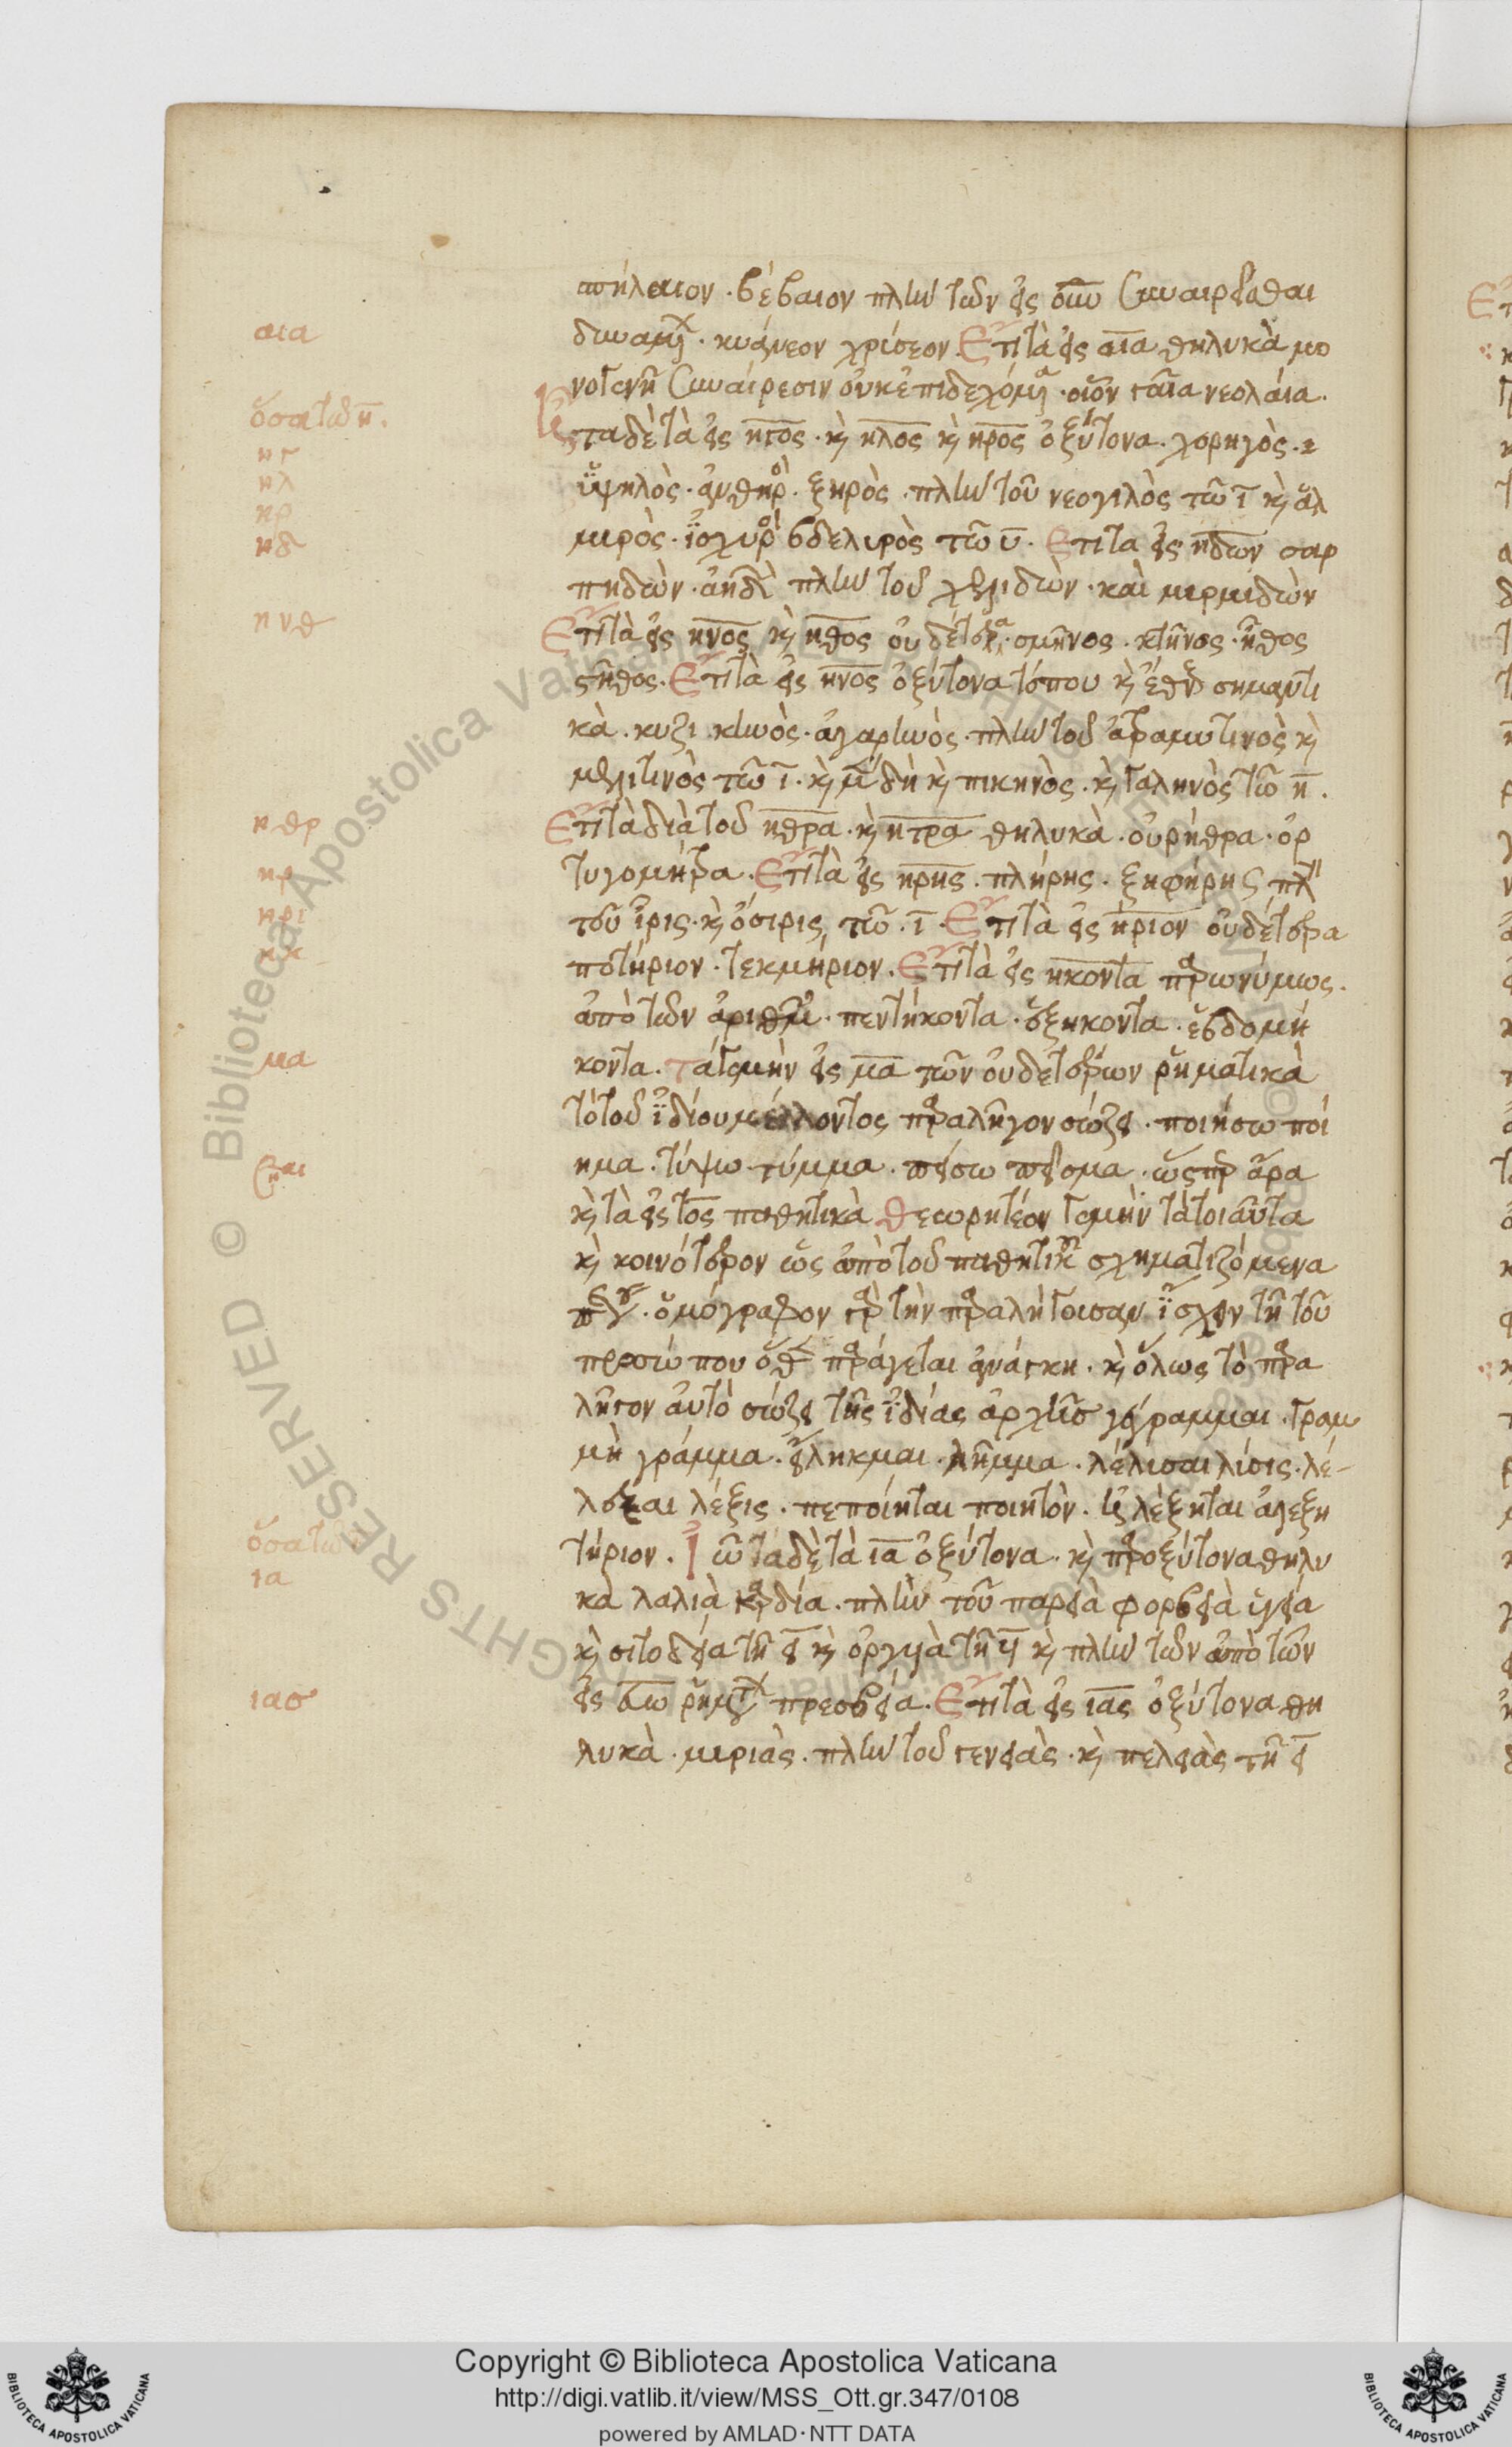 σπήλαιον · βέβαιον πλὴν τῶν εἰς οῦν συναιρεῖσθαι
αια
δυναμένων · κυάνεον χρύσεον Ἔτι τὰ εἰς αια θηλυκὰ μο
νογενῆ συναίρεσιν οὐκ ἐπιδεχόμενα · οἷον γαῖα νεολαία ·
ὅσα τῶ η .
τα δὲ τὰ εἰς ηγος · κὶ ηλος κὶ ηρος ὀξύτονα · χορηγὸς ·
ηγ
ηλ
ὑψηλὸς · ἀνθηρὸς · ξηρὸς · πλὴν τοῦ νεογιλὸς τῶ ι κὶ ἁλ
ηρ
ηδ
μυρὸς · ἰσχυρὸς βδελυρὸς τῶ υ · Ἔτι τα εἰς ηδων σαρ
πηδὼν · ἀηδὼν πλὴν τοῦ χελιδὼν · καὶ μυρμιδὼν
ηνθ
Ἔτι τὰ εἰς ηνος κὶ ηθος οὐδέτερα · σμῆνος · κτῆνος · ἦθος
στῆθος · Ἔτι τὰ εἰς ηνος ὀξύτονα τόπου κὶ ἐθνῶν σημαντι
κὰ · κυζικηνὸς · ἀγαρηνὸς · πλὴν τοῦ ἀτραμυτινὸς κὶ
μελιτινὸς τῶ ι · κὶ μ δὴ κὶ πικηνὸς · κὶ γαληνὸς τῶ η .
ηθρ
Ἔτι τὰ διὰ τοῦ ηθρα · κὶ ητρα θηλυκὰ · οὐρήθρα · ὀρ
ηρ
τυγομήτρα · Ἔτι τὰ εἰς ηρης · πλήρης · ξιφήρης πλὴν
ηρι
τοῦ ἶρις · κὶ ὄσιρις τῶ · ι · Ἔτι τὰ εἰς ήριον οὐδέτερα
ηκ
ποτήριον · τεκμήριον · Ἔτι τὰ εἰς ηκοντα παρωνύμως ·
ἀπὸ τῶν ἀριθμῶν · πεντήκοντα · ἑξήκοντα · ἑβδομή
μα
κοντα · τάγε μὴν εἰς μα τῶν οὐδετέρων ῥηματικὰ
τὸ τοῦ ἰδίου μέλλοντος παραλῆγον σώζει · ποιήσω ποί
ημα · τύψω τύμμα · πείσω πεῖσμα · ὥσπερ ἄρα
κὶ τὰ εἰς τος παθητικὰ θεωρητέον γε μὴν τὰ τοιαῦτα
κὶ κοινότερον ὡς ἀπὸ τοῦ παθητικοῦ σχηματιζόμενα
ὁμόγραφον γὰρ τὴν παραλήγουσαν ἴσχειν τῆ τοῦ
προσώπου ὅθεν παράγεται ἀνάγκη · κὶ ὅλως τὸ παρα
λῆγον αὐτὸ σώζει τῆς ἰδίας ἀρχῆσ γέγραμμαι · γραμ
μὴ γράμμα · εἴληκμαι · λῆμμα · λέλυσαι λύσις · λέ-
λεξαι λέξις · πεποίηται ποιητὸν · ἠλέξηται ἀλεξη
ὅσα τῶ ι
τήριον . Ἰῶτα δὲ τὰ ια ὀξύτονα · κὶ παροξύτονα θηλυ
ια
κὰ λαλιὰ καρδία · πλὴν τοῦ παρειὰ φορβειὰ ὑγεία
κὶ σιτοδεία τῆ ει κὶ ὀργυιὰ τῆ υι κὶ πλὴν τῶν ἀπὸ τῶν
ιασ
εἰς εύω ῥημάτων πρεσβεία · Ἔτι τὰ εἰς ιας ὀξύτονα θη
λυκὰ · μυριὰς · πλὴν τοῦ γενειὰς · κὶ πελειὰς τῆ ει
© Biblioteca Apostolica Vaticana
RIGHTS RESERVED
Copyright © Biblioteca Apostolica Vaticana
http://digi.vatlib.it/view/MSS_Ott.gr.347/0108
powered by AMLAD · NTT DATA
BIBLIOTECA APOSTOLICA VATICANA
BIBLIOTECA APOSTOLICA VATICANA